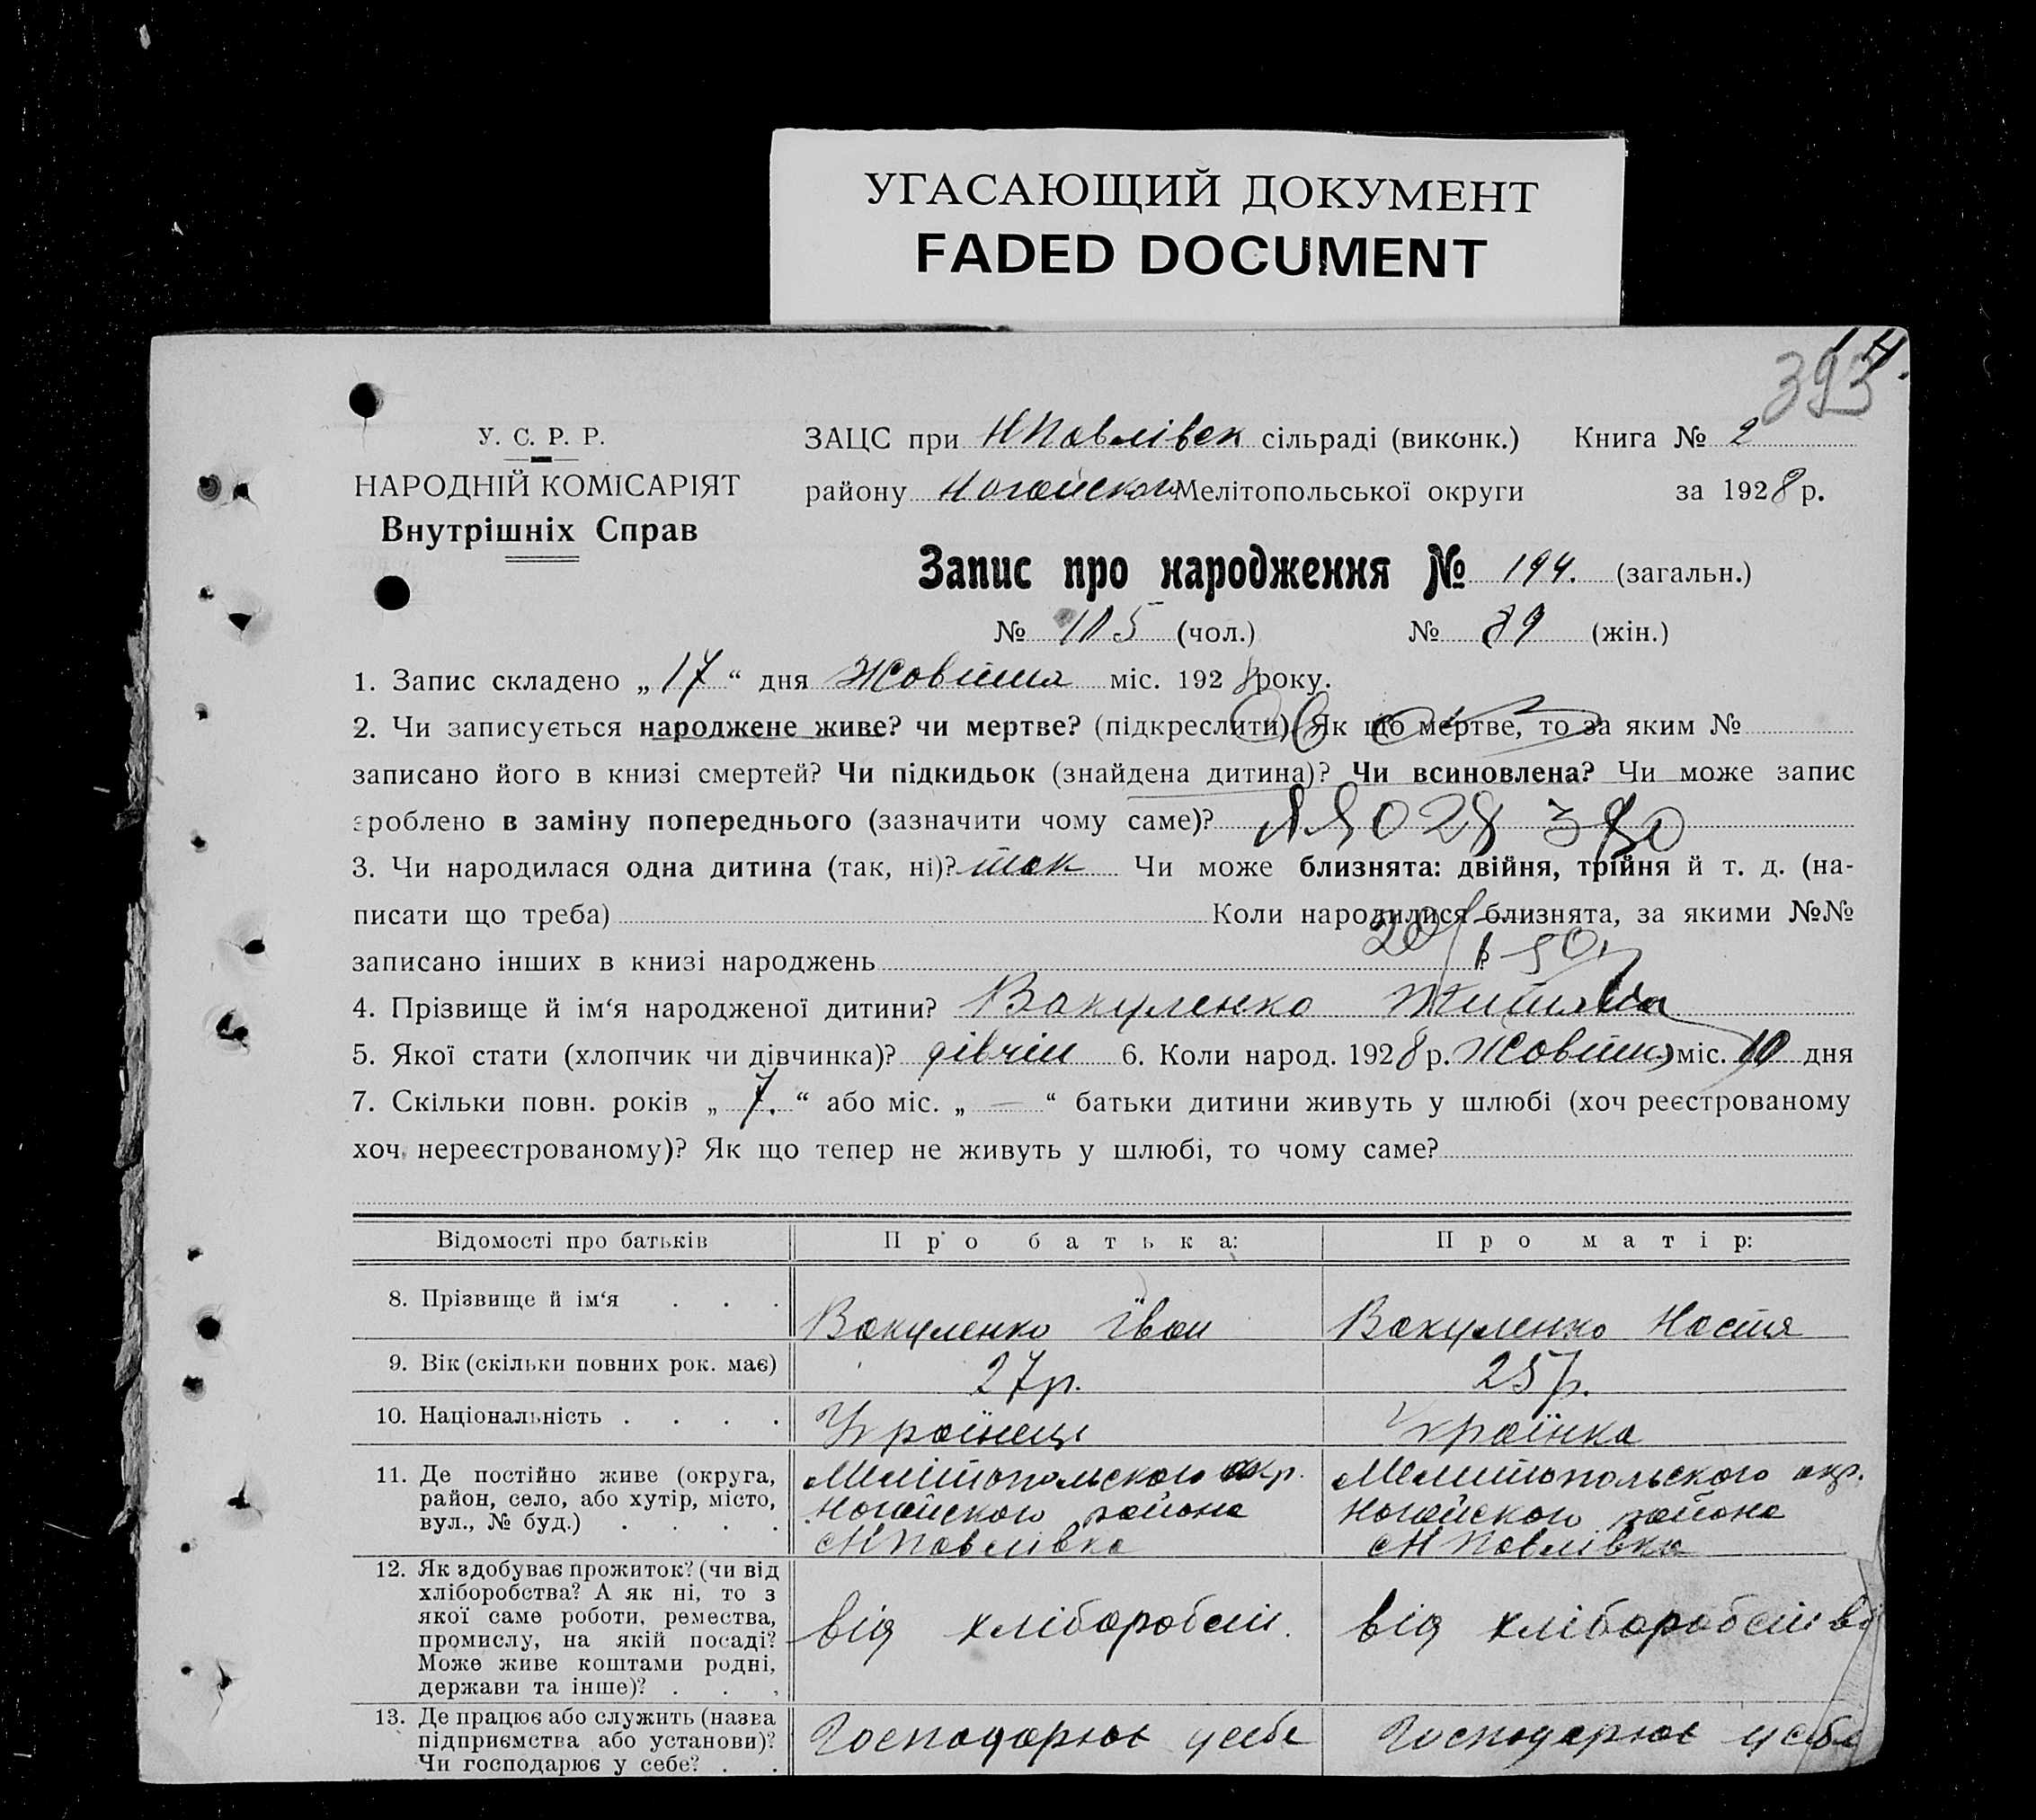 УГАСАЮЩИЙ ДОКУМЕНТ
FADED DOCUMENT
14.
393
У. С. Р. Р.
НАРОДНІЙ КОМІСАРІЯТ
Внутрішніх Справ
ЗАЦС при НПавлівск сільраді (виконк.) Книга № 2
району Ногайского Мелітопольської округи за 1928 р.
Запис про народження № 194. (загальн.)
№ 105 (чол.) № 89 (жін.)
1. Запис складено „17“ дня Жовтня міс. 1928 року.
2. Чи записується народжене живе? чи мертве? (підкреслити) Як що мертве, то за яким №
записано його в книзі смертей? Чи підкидьок (знайдена дитина)? Чи всиновлена? Чи може запис
зроблено в заміну попереднього (зазначити чому саме)?
3. Чи народилася одна дитина (так, ні)? так Чи може близнята: двійня, трійня й т. д. (на-
писати що треба) Коли народилися близнята, за якими №№
записано інших в книзі народжень ?
4. Прізвище й ім‘я народженої дитини? Вакуленко
5. Якої стати (хлопчик чи дівчинка)? дівчин 6. Коли народ. 1928 р. Жовтня міс. 10 дня
7. Скільки повн. років „7.“ або міс. „—“ батьки дитини живуть у шлюбі (хоч реєстрованому
хоч нереєстрованому)? Як що тепер не живуть у шлюбі, то чому саме?
Відомості про батьків Про батька: Про матір:
8. Прізвище й ім‘я . . . Вакуленко Іван Вакуленко Настя
9. Вік (скільки повних рок. має) 27 р. 25 р.
10. Національність . . . . Українець Українка
11. Де постійно живе (округа, район, село, або хутір, місто, вул., № буд.) . . . .
Мелітопольского окр. Ногайского района с НПавлівка
Мелитопольского окр. Ногайского района с НПавлівка
12. Як здобуває прожиток? (чи від хліборобства? А як ні, то з якої саме роботи, ремества, промислу, на якій посаді? Може живе коштами родні, держави та інше)? . . .
від хліборобст. від хліборобства
13. Де працює або служить (назва підприємства або установи)? Чи господарює у себе? . .
Господарює у себе Господарює у себе